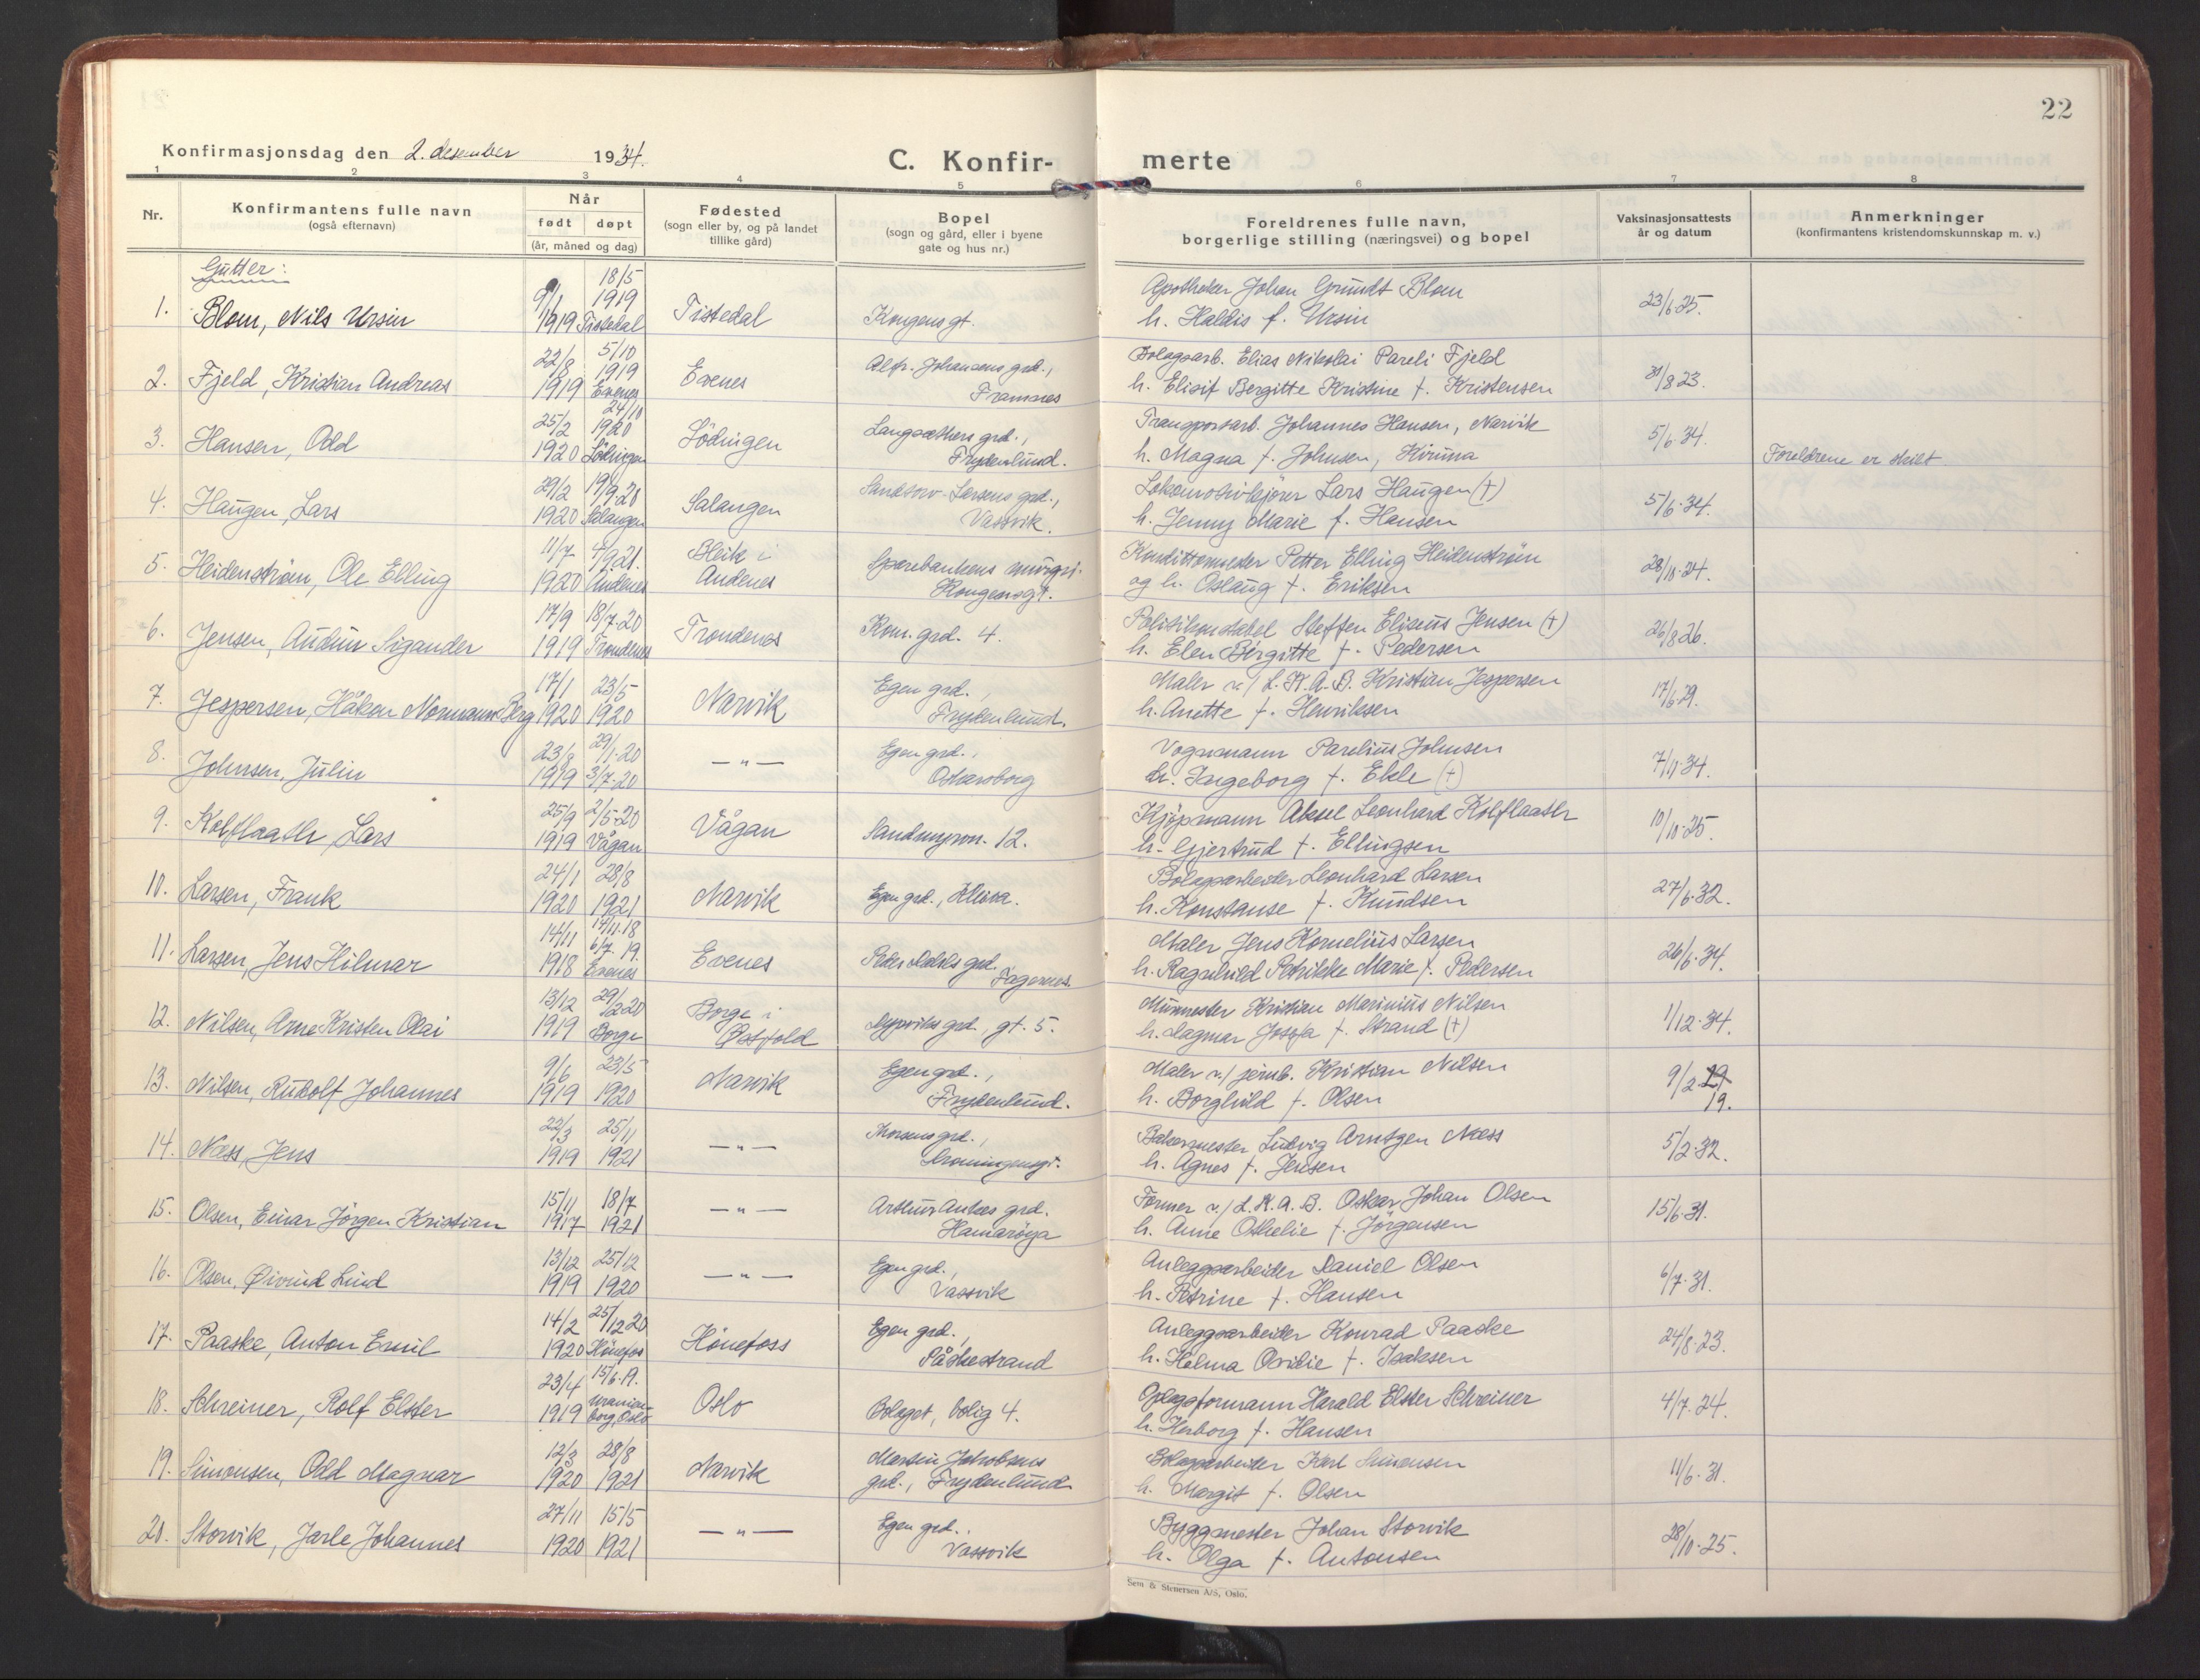 22
Konfirmasjonsdag den 2. desember 1934.
C. Konfir- merte
1 2 3 4 5 6 7 8
Nr.
Konfirmantens fulle navn
(også efternavn)
Når
født døpt
(år, måned og dag)
Fødested
(sogn eller by, og på landet
tillike gård)
Bopel
(sogn og gård, eller i byene
gate og hus nr.)
Foreldrenes fulle navn,
borgerlige stilling (næringsvei) og bopel
Vaksinasjonsattests
år og datum
Anmerkninger
(konfirmantens kristendomskunnskap m. v.)
Gutter:
18/5
9/1 1919 Apotheker Johan Grundt Blom
1. Blom, Nils Ursin 1919 Tistedal Tistedal Kongensgt. h. Haldis f. Ursin 23/6 25.
22/8 5/10 1919 Alfr. Johansens grd., Bolagsarb. Elias Nikolai Pareli Fjeld
2. Fjeld, Kristian Andreas 1919 Evenes Evenes Framnes h. Elisif Bergitte Kristine f. Kristensen 31/8 23.
25/2 24/10 1920 Langsæthers grd., Transportarb. Johannes Hansen, Narvik
3. Hansen, Odd 1920 Lödingen Lödingen Frydenlund. h. Magna f. Johnsen, Kiruna 5/6 34. Foreldrene er skilt
29/2 19/9.20 Larsens grd., Lokomotivkjører Lars Haugen (†)
4. Haugen, Lars 1920 Salangen Salangen Vassvik. h. Jenny Marie f. Hansen 5/6.34.
11/7 4/9.21. Bleik i Sparebankens murgr. Konditormester Petter Elling Heidenstrøm
5. Heidenstrøm, Ole Elling 1920 Andenes Andenes Kongensgt. og h. Oslaug f. Eriksen 28/10.24.
17/9 18/7.20 Politikonstabel Steffen Eliseus Jensen (†)
6. Jensen, Audun Sigander 1919 Trondenes Trondenes Kom. grd. 4. h. Elen Birgitte f. Pedersen 26/8 26.
17/1 23/5 Egen grd., Maler v/ L.K.A.B. Kristian Jespersen
7. Jespersen, Håkon Normann Berg 1920 1920 Narvik Frydenlund. h. Anette f. Henriksen 17/6.29.
23/8 29/1.20 Egen grd., Vognmann Parelius Johnsen
8. Johnsen, Julin 1919 3/7.20 — „ — Oskarsborg h. Ingeborg f. Ekle (†) 7/11.34.
25/9 2/5.20 Kjøpmann Aksel Leonhard Kolflaath
9. Kolflaath, Lars 1919 Vågan Vågan Sandmyrvn. 12. h. Gjertrud f. Ellingsen 10/10.25.
24/1 28/8 Bolagsarbeider Leonhard Larsen
10. Larsen, Frank 1920 1921 Narvik Egen grd., Kleiva. h. Konstanse f. Knudsen 27/6.32.
14/11 14/11.18 6/7 19. Maler Jens Kornelius Larsen
11. Larsen, Jens Hilmar 1918 Evenes Evenes Peder grd. Fagernes. h. Ragnhild Petrikke Marie f. Pedersen 26/6.34.
13/12 29/2 20 Borge i Murmester Kristian Marinius Nilsen
12. Nilsen, Arne Kristen Olai 1919 Borge Østfold grd., gt. 5. h. Dagmar Josefa f. Strand (†) 1/12.34.
9/6 23/5 Egen grd., Maler v/ jernb. Kristian Nilsen
13. Nilsen, Rudolf Johannes 1919 1920 Narvik Frydenlund. h. Borghild f. Olsen 9/2 19.
22/3 25/11 Thorsens grd., Bakermester Ludvig Arntzen Næss
14. Næss, Jens 1919 1921 — „ — Dronningensgt. h. Agnes f. Jensen 5/2.32.
15/11 18/7 Arthur Antons grd. Former v/ L.K.A.B. Oskar Johan Olsen
15. Olsen, Einar Jörgen Kristian 1917 1921 — „ — Hamarøya h. Anne Othelie f. Jörgensen 15/6.31.
13/12 25/12 Egen grd., Anleggsarbeider Daniel Olsen
16. Olsen, Øivind Lind 1919 1920 — „ — Vassvik h. Petrine f. Hansen 6/7.31.
14/2 25/12 20 Egen grd., Anleggsarbeider Konrad Paaske
17. Paaske, Anton Emil 1920 Hönefos Hönefoss Påskestrand h. Helma Ovidie f. Isaksen 24/8.23.
23/4 15/6.19. Uranienborg, Oslo Oplagsformann Harald Elster Schreiner
18. Schreiner, Rolf Elster 1919 Oslo Bolaget, bolig 4. h. Herborg f. Hansen 4/7.24.
12/3 28/8 Martin Jakobsens Bolagsarbeider Karl Simonsen
19. Simonsen, Odd Magnar 1920 1921 Narvik grd., Frydenlund h. Margit f. Olsen 11/6.31.
27/11 15/5 Egen grd., Byggmester Johan Storvik
20. Storvik, Jarle Johannes 1920 1921 — „ — Vassvik h. Olga f. Antonsen 28/10.25.
Sem & Stenersen A/S, Oslo.